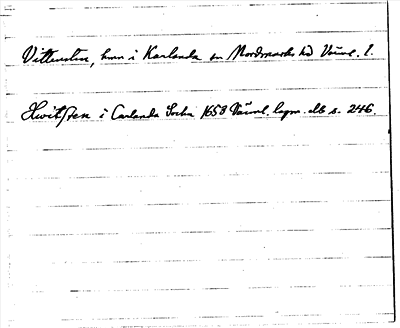 Vittensten, hmn i Karlanda sn Nordmarks hd Värml. l.
Hwitsten i Carlanda Sochn 1658 Värml. lagm. db s. 246.